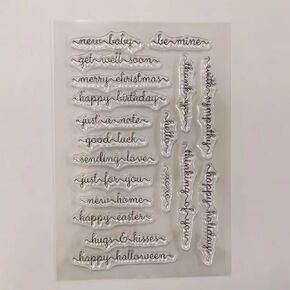 new baby
be mine
get well soon
merry christmas
happy birthday
just a note
good luck
sending love
just for you
new home
happy easter
hugs & kisses
happy halloween
thank you
with sympathy
hello
thinking of you
happy holidays